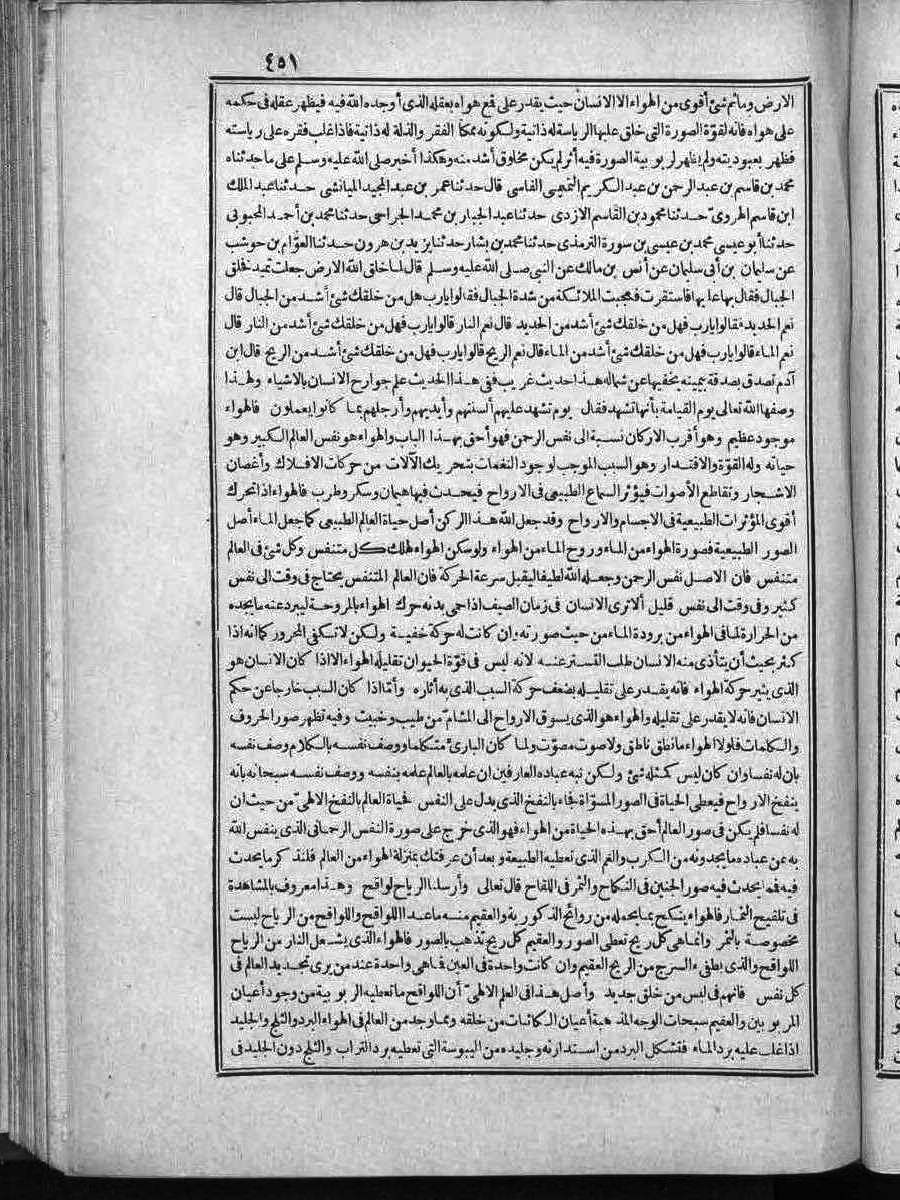 ٤٥١
الارض وماثم شئ أقوى من الهواء الا الانسان حيث يقدر على قمع هواه بعقله الذى أوجده الله فيه فيظهر عقله فى حكمه
على هواه فانه لقوّة الصورة التى خلق عليها الرياسة له ذاتية ولكونه ممكنا الفقر والذلة له ذاتية فاذا غلب فقره على رياسته
فظهر بعبوديته ولم يظهر لربوبية الصورة فيه أثر لم يكن مخلوق أشد منه وهكذا أخبر صلى الله عليه وسلم على ما حدثناه
محمد بن قاسم بن عبد الرحمن بن عبد الكريم التميمى الفاسى قال حدثنا عمر بن عبد المجيد الميانشى حدثنا عبد الملك
ابن قاسم الهروىّ حدثنا محمود بن القاسم الازدى حدثنا عبد الجبار بن محمد الجراحى حدثنا محمد بن أحمد المحبوبى
حدثنا أبو عيسى محمد بن عيسى بن سورة الترمذى حدثنا محمد بن بشار حدثنا يزيد بن هرون حدثنا العوّام بن حوشب
عن سليمان بن أبى سليمان عن أنس بن مالك عن النبى صلى الله عليه وسلم قال لما خلق الله الارض جعلت تميد فخلق
الجبال فقال بها عليها فاستقرت فعجبت الملائكة من شدة الجبال فقالوا يارب هل من خلقك شئ أشد من الجبال قال
نعم الحديد فقالوا يارب فهل من خلقك شئ أشد من الحديد قال نعم النار قالوا يارب فهل من خلقك شئ أشد من النار قال
نعم الماء قالوا يارب فهل من خلقك شئ أشد من الماء قال نعم الريح قالوا يارب فهل من خلقك شئ أشد من الريح قال ابن
آدم تصدق بصدقة بيمينه يخفيها عن شماله هذا حديث غريب ففى هذا الحديث علم جوارح الانسان بالاشياء ولهذا
وصفها الله تعالى يوم القيامة بأنها تشهد فقال يوم تشهد عليهم ألسنتهم وأيديهم وأرجلهم بما كانوا يعملون فالهواء
موجود عظيم وهو أقرب الاركان نسبة الى نفس الرحمن فهو أحق بهذا الباب والهواء هو نفس العالم الكبير وهو
حياته وله القوّة والاقتدار وهو السبب الموجب لوجود النغمات بتحريك الآلات من حركات الافلاك وأغصان
الاشجار وتقاطع الأصوات فيؤثر السماع الطبيعى فى الارواح فيحدث فيها هيمان وسكر وطرب فالهواء اذا تحرك
أقوى المؤثرات الطبيعية فى الاجسام والارواح وقد جعل الله هذا الركن أصل حياة العالم الطبيعى كما جعل الماء أصل
الصور الطبيعية فصورة الهواء من الماء وروح الماء من الهواء ولو سكن الهواء لهلك كل متنفس وكل شئ فى العالم
متنفس فان الاصل نفس الرحمن وجعله الله لطيفا ليقبل سرعة الحركة فان العالم المتنفس يحتاج فى وقت الى نفس
كثير وفى وقت الى نفس قليل ألا ترى الانسان فى زمان الصيف اذا حمى بدنه حرك الهواء بالمروحة ليبرد عنه ما يجده
من الحرارة لما فى الهواء من برودة الماء من حيث صورته وان كانت له حركة خفيفة ولكن لا تكفى المحرور كما انه اذا
كثر بحيث أن يتأذى منه الانسان طلب التستر عنه لانه ليس فى قوّة الحيوان تقليله الهواء الا اذا كان الانسان هو
الذى يثير حركة الهواء فانه يقدر على تقليله بضعف حركة السبب الذى به أثاره وأما اذا كان السبب خارجا عن حكم
الانسان فانه لا يقدر على تقليله والهواء هو الذى يسوق الارواح الى المشامّ من طيب وخبيث وفيه تظهر صور الحروف
والكلمات فلولا الهواء ما نطق ناطق ولا صوت مصوّت ولما كان البارئ متكلما ووصف نفسه بالكلام وصف نفسه
بان له نفسا وان كان ليس كمثله شئ ولكن نبه عباده العارفين ان علمه بالعالم علمه بنفسه ووصف نفسه سبحانه بانه
ينفخ الارواح فيعطى الحياة فى الصور المسوّاة فجاء بالنفخ الذى يدل على النفس فحياة العالم بالنفخ الالهىّ من حيث ان
له نفسا فلم يكن فى صور العالم أحق بهذه الحياة من الهواء فهو الذى خرج على صورة النفس الرحمانى الذى ينفس الله
به عن عباده ما يجدونه من الكرب والغم الذى تعطيه الطبيعة وبعد أن عرفتك بمنزلة الهواء من العالم فلنذكر ما يحدث
فيه فما يحدث فيه صور الجنين فى النكاح والثمر فى اللقاح قال تعالى وأرسلنا الرياح لواقح وهذا معروف بالمشاهدة
فى تلقيح الثمار فالهواء ينكح بما يحمله من روائح الذكورية والعقيم منه ما عدا اللواقح واللواقح من الرياح ليست
مخصوصة بالثمر وانما هى كل ريح تعطى الصور والعقيم كل ريح تذهب بالصور فالهواء الذى يشعل النار من الرياح
اللواقح والذى يطفئ السرج من الريح العقيم وان كانت واحدة فى العين فما هى واحدة عند من يرى تجديد العالم فى
كل نفس فانهم فى لبس من خلق جديد وأصل هذا فى العلم الالهىّ أن اللواقح ما تعطيه الربوبية من وجود أعيان
المربوبين والعقيم سبحات الوجه المذهبة أعيان الكائنات من خلقه ومما وجد من العالم فى الهواء البرد والثلج والجليد
اذا غلب عليه برد الماء فتشكل البرد من استدارته وجليده من اليبوسة التى تعطيه برد التراب والثلج دون الجليد فى